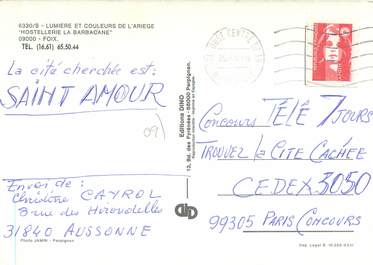 6330/S - LUMIÈRE ET COULEURS DE L'ARIEGE
"HOSTELLERIE LA BARBACANE"
09000 - FOIX.
TÉL. (16.61) 65.50.44
La cité cherchée est :
SAINT AMOUR
09)
Envoi de :
Christine CAYROL
3 rue des Hirondelles
31840 AUSSONNE
Photo JAMIN - Perpignan
Editions DINO
13, Bd. des Pyrénées - 66000 Perpignan.
Concours TÉLÉ 7 JOURS
TROUVEZ la CITE CACHÉE
CEDEX 3050
99305 PARIS CONCOURS